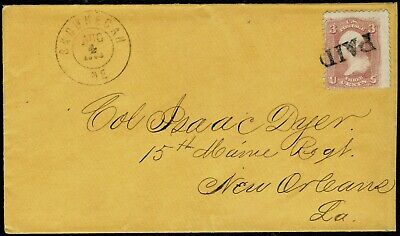 SKOWHEGAN
AUG
4
ME
3 U.S. POSTAGE 3
PAID
U THREE CENTS S
Col Isaac Dyer.
15th Maine Regt.
New Orleans
La.